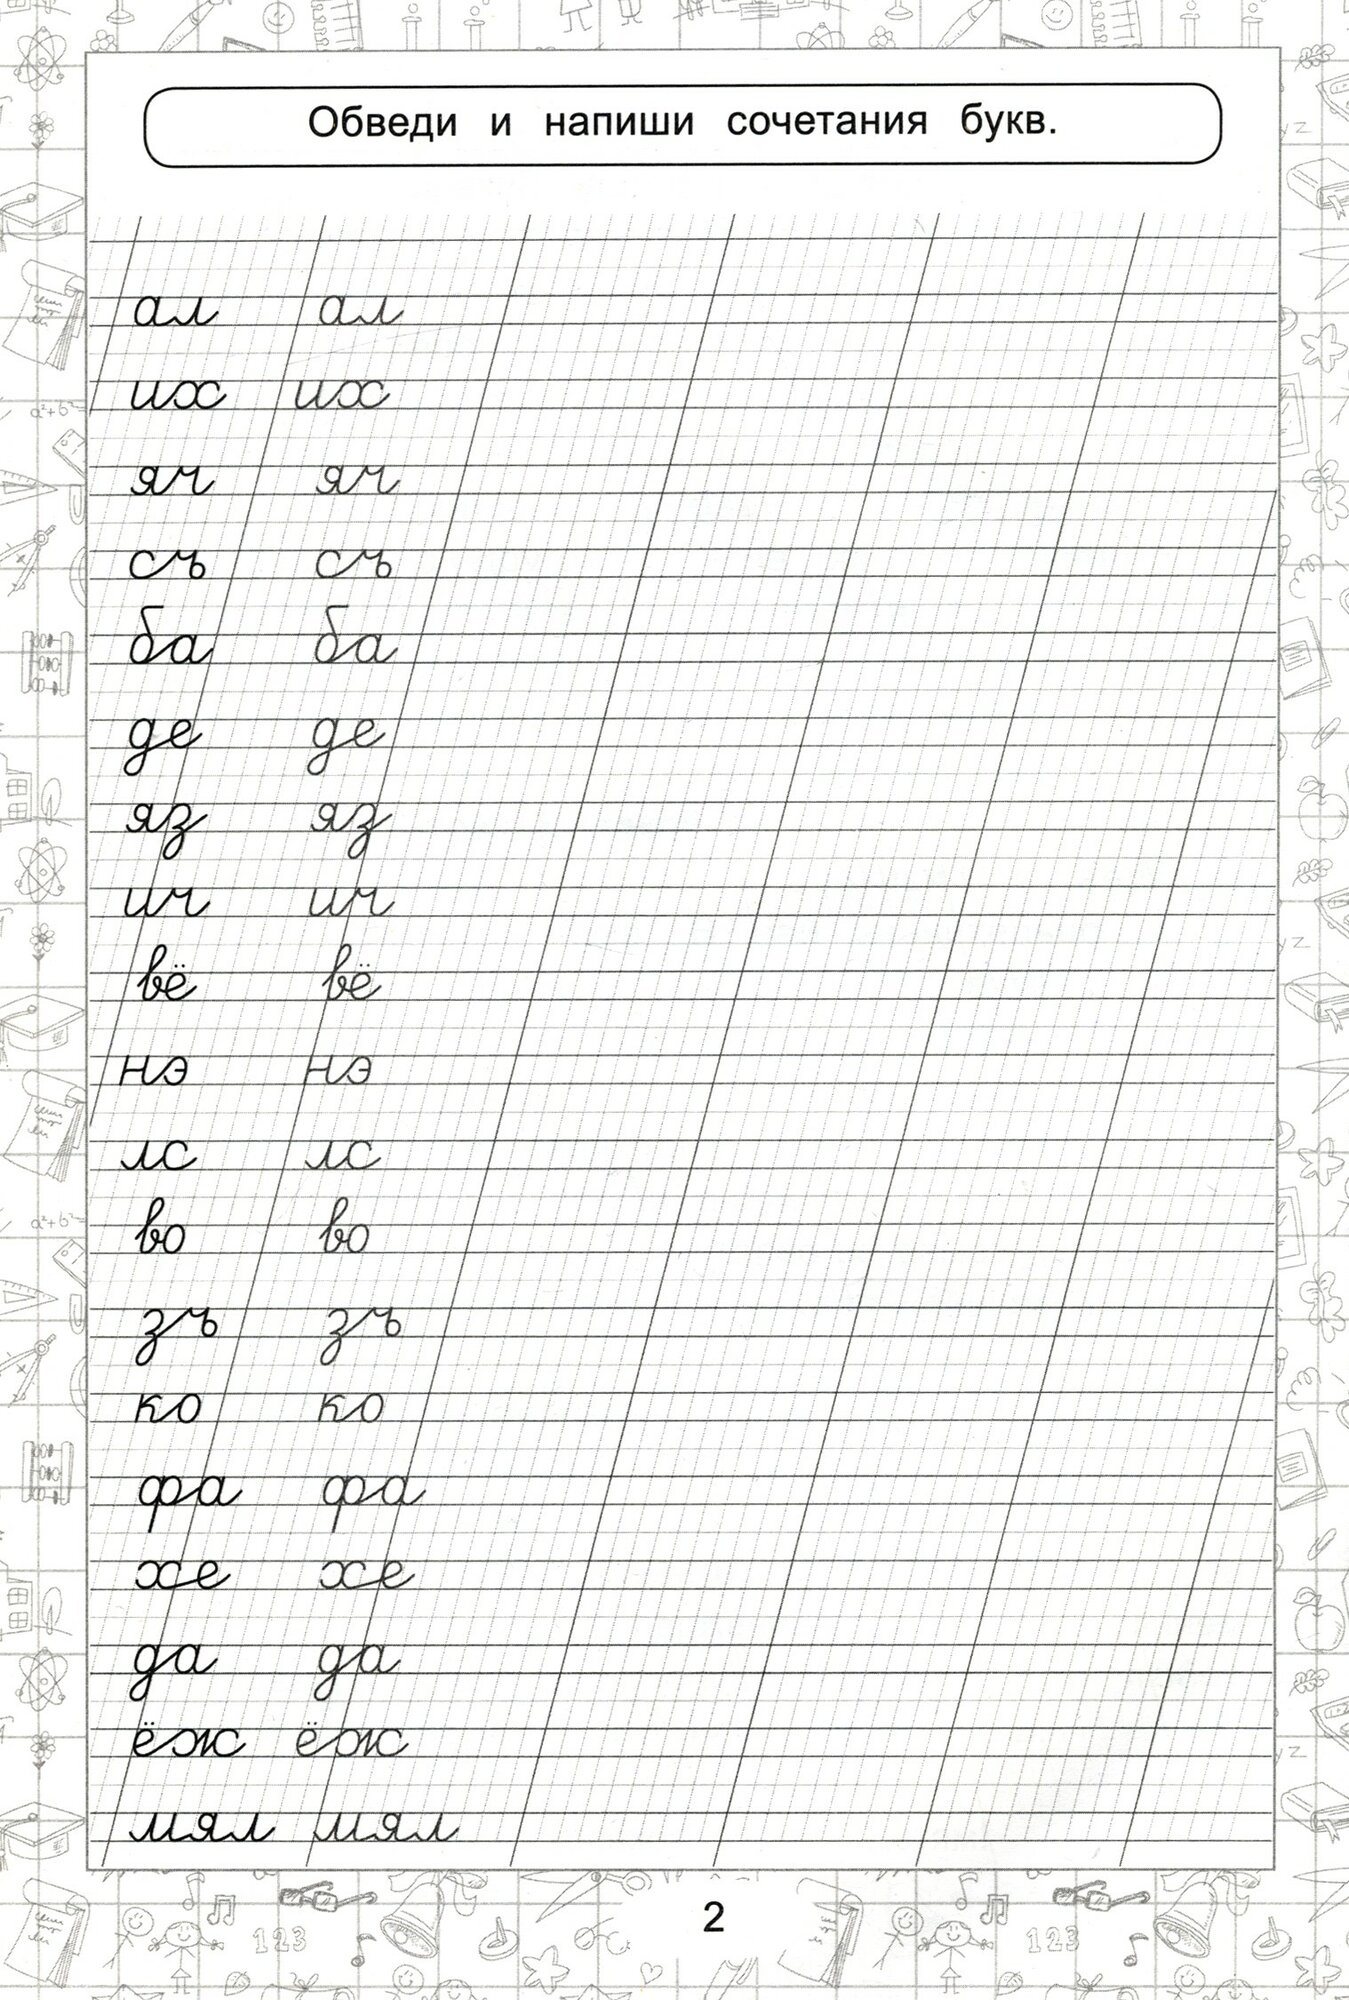 Обведи и напиши сочетания букв.
ал ал
их их
яч яч
съ съ
ба ба
де де
яз яз
ич ич
вё вё
нэ нэ
лс лс
во во
зъ зъ
ко ко
фа фа
хе хе
да да
ёж ёж
мял мял
2